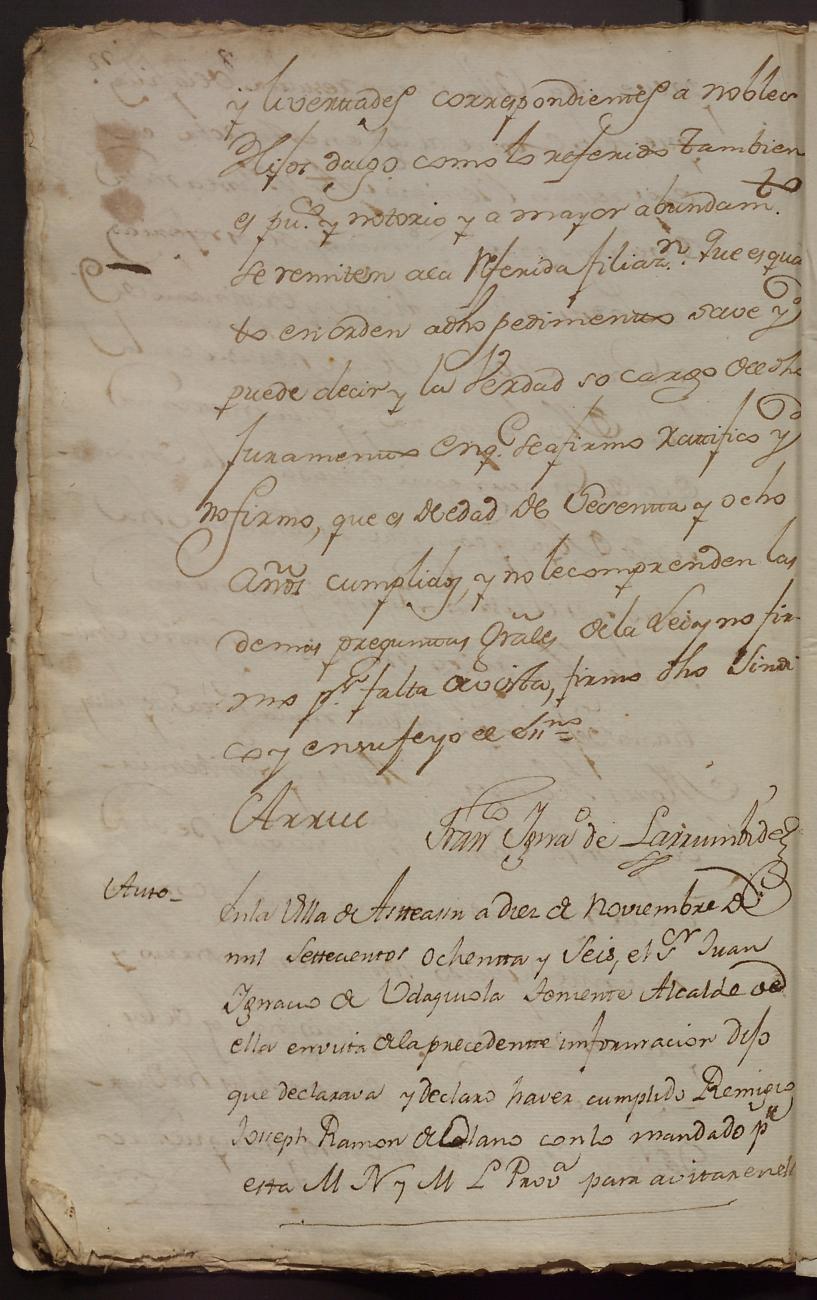 y livertades correspondientes a nobles
Hijos dalgo como lo referido tambien
es pu.co y notorio y a mayor abundam.to
se remiten a la referida filiaz.n que es qua
to en orden a dho pedimento save y
puede decir y la verdad so cargo de dho
juramento en q.e se afirmo ratifico y
no firmo, que es de edad de sesenta y ocho
años cumplidos, y no le comprenden las
demas preguntas grâles de la Lei y no fir-
mo p.r falta de vista, firmo dho Sindi
co y en su fe yo el Ss.no =
Arrue Fran.co Igna.o de Larrumbide
Auto_
En la Villa de Asteasu a diez de Noviembre de
mil Settecientos ochentta y Seis, el S.r Juan
Ignacio de Udaquiola teniente Alcalde de
ella en vista de la precedente informacion dijo
que declarava y declaro haver cumplido Remigio
Joseph Ramon de Olano con lo mandado p.r
esta M N y M L Prov.a para avitar en el